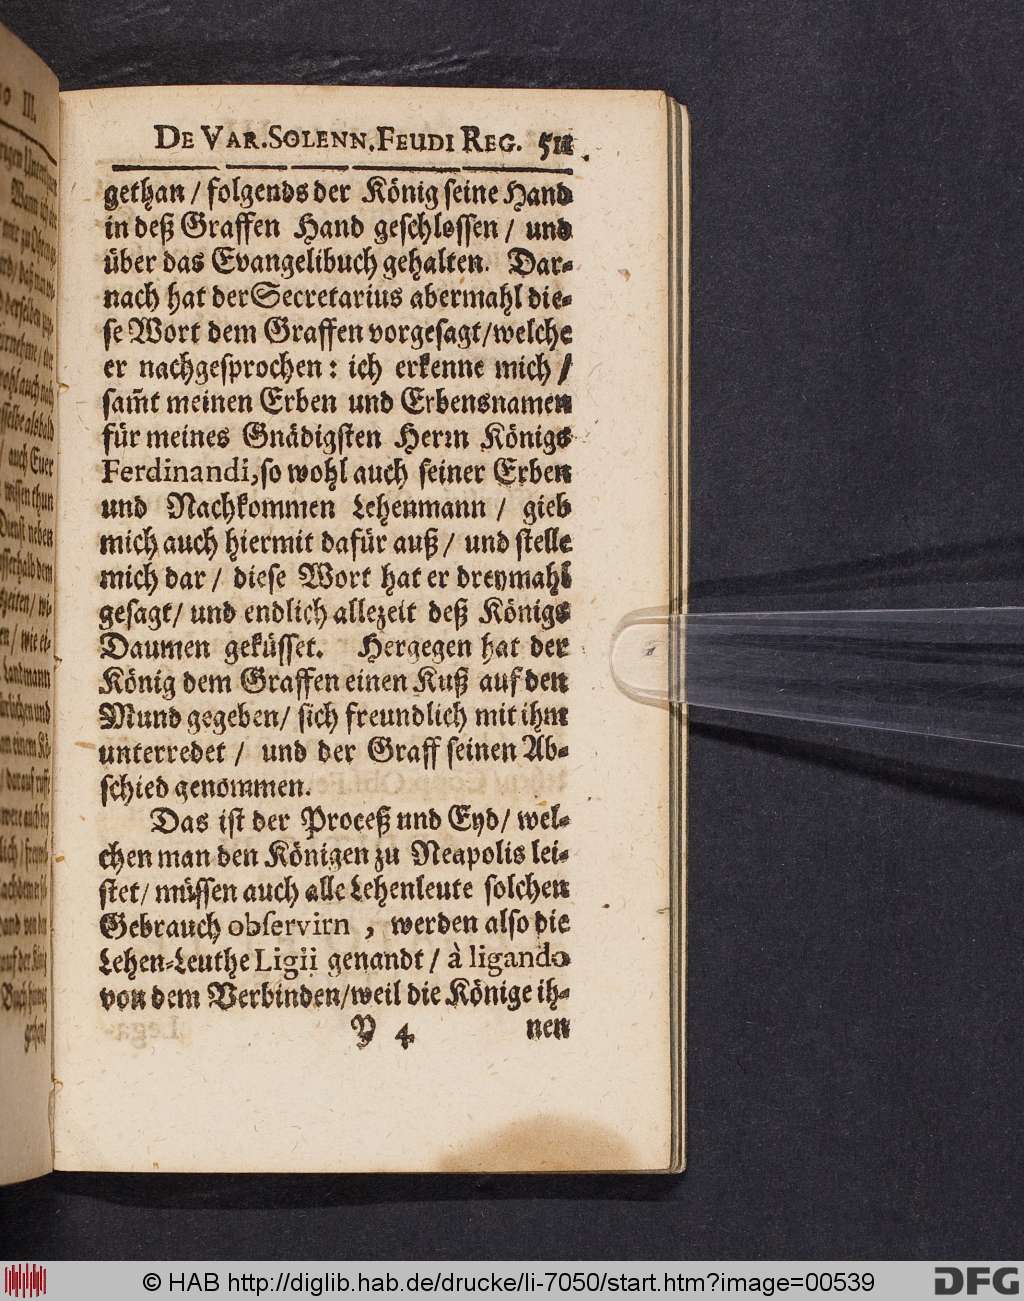 DE VAR. SOLENN. FEUDI REG. 511
gethan / folgends der König seine Hand
in deß Graffen Hand geschlossen / und
über das Evangelibuch gehalten. Dar-
nach hat der Secretarius abermahl die-
se Wort dem Graffen vorgesagt/welche
er nachgesprochen: ich erkenne mich /
sam̃t meinen Erben und Erbensnamen
für meines Gnädigsten Herrn Königs
Ferdinandi, so wohl auch seiner Erben
und Nachkommen Lehenmann / gieb
mich auch hiermit dafür auß / und stelle
mich dar / diese Wort hat er dreymahl
gesagt/ und endlich allezeit deß Königs
Daumen geküsset. Hergegen hat der
König dem Graffen einen Kuß auf den
Mund gegeben/ sich freundlich mit ihm
unterredet / und der Graff seinen Ab-
schied genommen.
Das ist der Proceß und Eyd/ wel-
chen man den Königen zu Neapolis lei-
stet/ müssen auch alle Lehenleute solchen
Gebrauch observirn , werden also die
Lehen-Leuthe Ligii genandt / à ligando
von dem Verbinden/weil die Könige ih-
Y 4 nen
III.
Wann ich
auch Euer
wissen thun
Dienst neben
Landmann
© HAB http://diglib.hab.de/drucke/li-7050/start.htm?image=00539
DFG